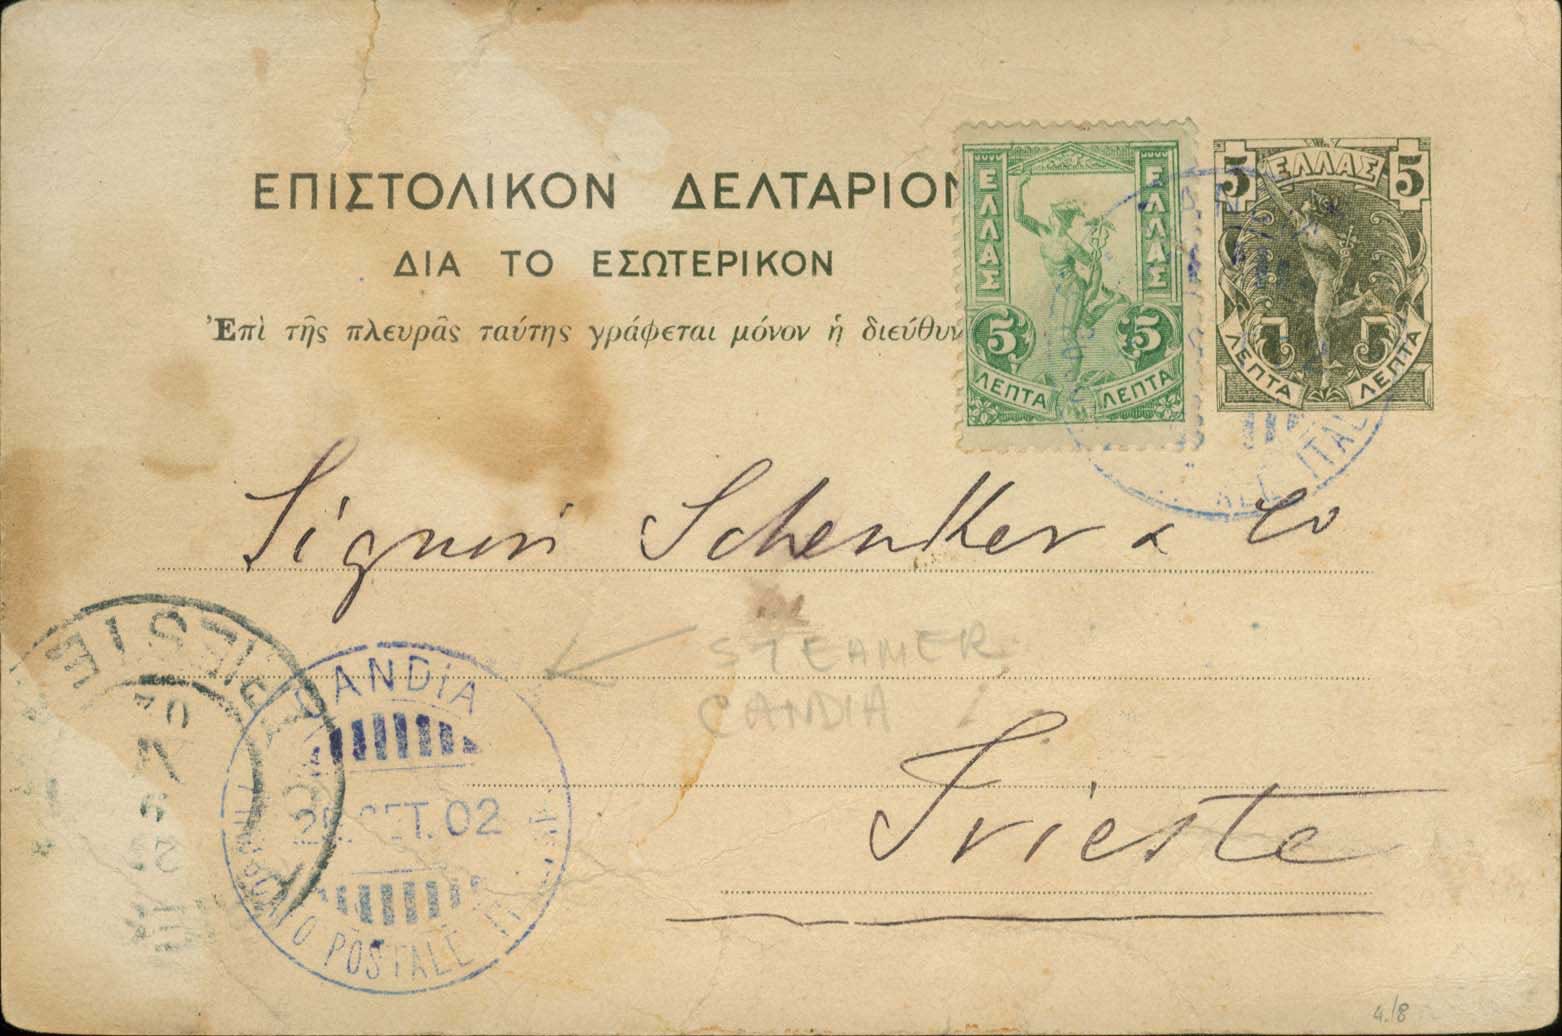 ΕΠΙΣΤΟΛΙΚΟΝ ΔΕΛΤΑΡΙΟΝ
ΔΙΑ ΤΟ ΕΣΩΤΕΡΙΚΟΝ
Ἐπὶ τῆς πλευρᾶς ταύτης γράφεται μόνον ἡ διεύθυν
ΕΛΛΑΣ ΕΛΛΑΣ
5 5
ΛΕΠΤΑ ΛΕΠΤΑ
5 ΕΛΛΑΣ 5
5 5
ΛΕΠΤΑ ΛΕΠΤΑ
ALE ITAL
Signori Schenker & Co
STEAMER
CANDIA
Trieste
TRIESTE
CANDIA
SET. 02
POSTALE IT
4./8